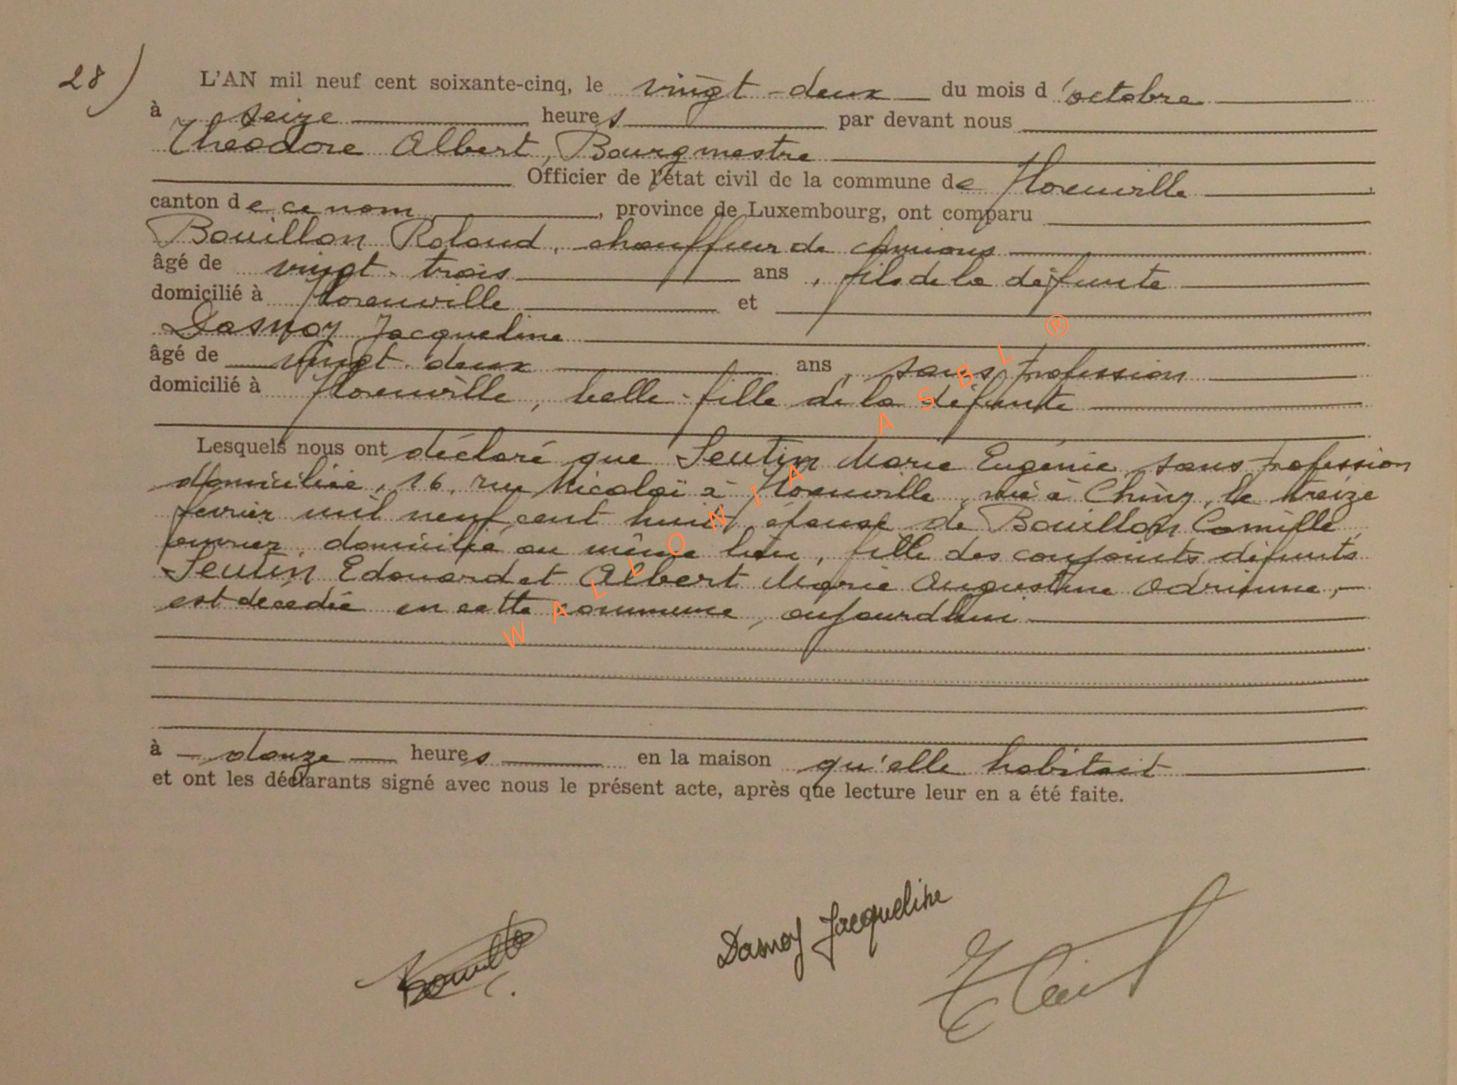 28)
L'AN mil neuf cent soixante-cinq, le vingt-deux du mois d'octobre
à seize heures par devant nous
Théodore Albert, Bourgmestre
Officier de l'état civil de la commune de Florenville
canton de ce nom, province de Luxembourg, ont comparu
Bouillon Roland, chauffeur de camions
âgé de vingt-trois ans, fils de la défunte
domicilié à Florenville et
Dasnoy Jacqueline
âgé de vingt-deux ans, sans profession
domicilié à Florenville, belle-fille de la défunte
Lesquels nous ont déclaré que Seutin Marie Eugénie, sans profession
domiciliée, 16, rue Nicolaï à Florenville, née à Chiny, le treize
février mil neuf cent huit, épouse de Bouillon Camille,
ouvrier, domicilié au même lieu, fille des conjoints défunts
Seutin Edouard et Albert Marie Augustine Adrienne,
est décédée en cette commune, aujourd'hui
à douze heures en la maison qu'elle habitait
et ont les déclarants signé avec nous le présent acte, après que lecture leur en a été faite.
Dasnoy Jacqueline
WALLONIA ASBL ®